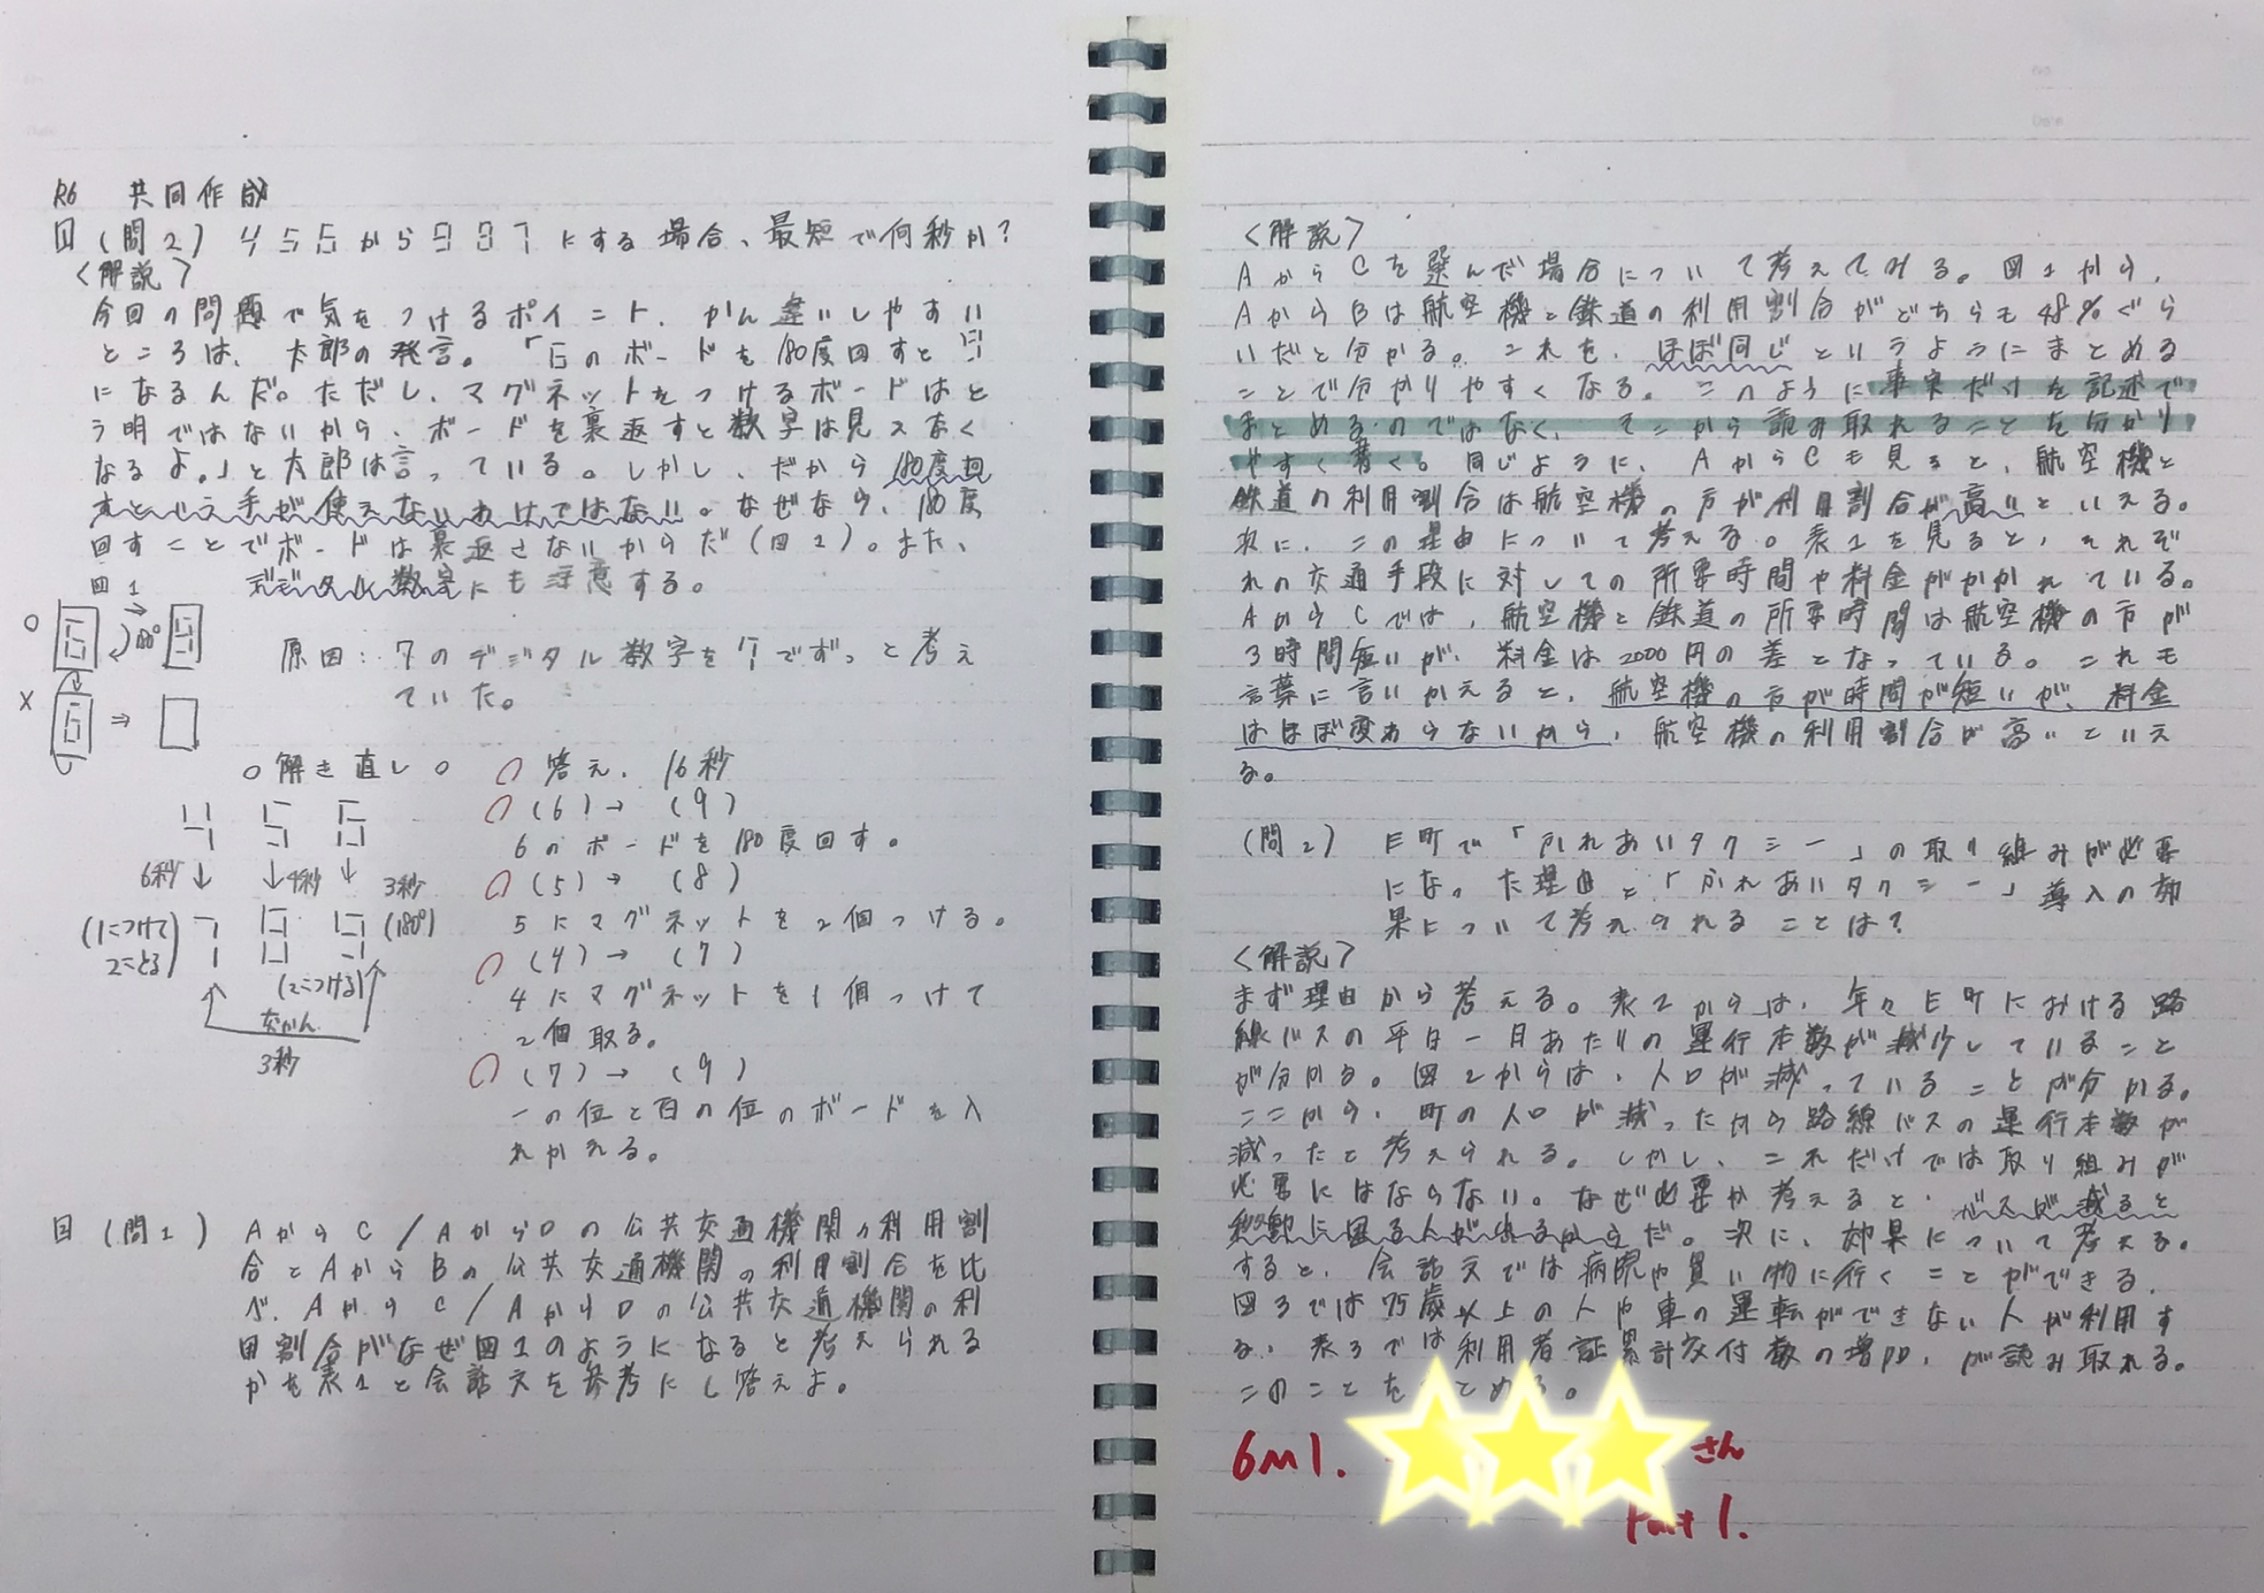 R6 共同作成
1 (問2) 456から987にする場合、最短で何秒か?
<解説>
今回の問題で気をつけるポイント、かん違いしやすい
ところは、太郎の発言。「6のボードを180度回すと9
になるんだ。ただし、マグネットをつけるボードはと
う明ではないから、ボードを裏返すと数字は見えなく
なるよ。」と太郎は言っている。しかし、だから180度回
すという手が使えないわけではない。なぜなら、180度
回すことでボードは裏返さないからだ(図1)。また、
図1 デジタル数字にも注意する。
○ 6 → 180° 9
原因:7のデジタル数字を7でずっと考え
ていた。
× 6 ⇒
○解き直し○
4 5 6
6秒↓ ↓4秒 ↓ 3秒
(1こつけて 2ことる) 7 8 9 (180°)
(2こつける)
交かん
3秒
答え、16秒
(6)→ (9)
6のボードを180度回す。
(5)→ (8)
5にマグネットを2個つける。
(4)→ (7)
4にマグネットを1個つけて
2個取る。
(7)→ (9)
一の位と百の位のボードを入
れかえる。
(問1) AからC/AからDの公共交通機関の利用割
合とAからBの公共交通機関の利用割合を比
べ、AからC/AからDの公共交通機関の利
用割合がなぜ図1のようになると考えられる
かを表1と会話文を参考にし答えよ。
<解説>
AからCを選んだ場合について考えてみる。図1から、
AからBは航空機と鉄道の利用割合がどちらも48%ぐら
いだと分かる。これを、ほぼ同じというようにまとめる
ことで分かりやすくなる。このように事実だけを記述で
まとめるのではなく、そこから読み取れることを分かり
やすく書く。同じように、AからCも見ると、航空機と
鉄道の利用割合は航空機の方が利用割合が高いといえる。
次に、この理由について考える。表1を見ると、それぞ
れの交通手段に対しての所要時間や料金がかかれている。
AからCでは、航空機と鉄道の所要時間は航空機の方が
3時間短いが、料金は2000円の差となっている。これも
言葉に言いかえると、航空機の方が時間が短いが、料金
はほぼ変わらないから、航空機の利用割合が高いといえ
る。
(問2) E町で「ふれあいタクシー」の取り組みが必要
になった理由と「ふれあいタクシー」導入の効
果について考えられることは?
<解説>
まず理由から考える。表2からは、年々E町における路
線バスの平日一日あたりの運行本数が減少していること
が分かる。図2からは、人口が減っていることが分かる。
ここから、町の人口が減ったから路線バスの運行本数が
減ったと考えられる。しかし、これだけでは取り組みが
必要にはならない。なぜ必要か考えると、バスが減ると
移動に困る人が出るからだ。次に、効果について考える。
すると、会話文では病院や買い物に行くことができる、
図3では75歳以上の人や車の運転ができない人が利用す
る、表3では利用者証累計交付数の増加、が読み取れる。
このことをまとめる。
6M1. さん
Part 1.